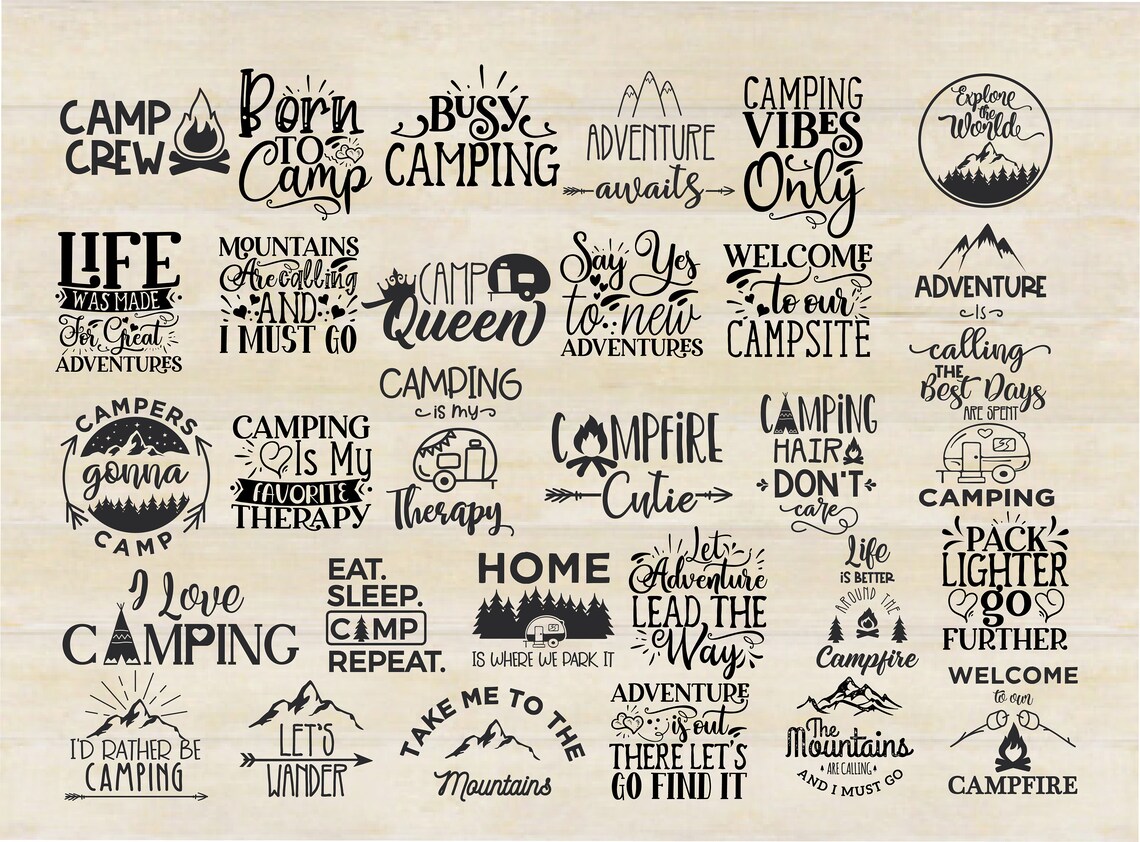 CAMP
CREW
Born
TO
Camp
BUSY
CAMPING
ADVENTURE
awaits
CAMPING
VIBES
Only
Explore
the
World
LIFE
WAS MADE
For Great
ADVENTURES
MOUNTAINS
Are calling
AND
I MUST GO
CAMP
Queen
Say Yes
to new
ADVENTURES
WELCOME
to our
CAMPSITE
ADVENTURE
is
calling
CAMPERS
gonna
CAMP
CAMPING
Is My
FAVORITE
THERAPY
CAMPING
is my
Therapy
CAMPFIRE
Cutie
CAMPING
HAIR
DON'T
care
THE
Best Days
ARE SPENT
CAMPING
I Love
CAMPING
EAT.
SLEEP.
CAMP
REPEAT.
HOME
IS WHERE WE PARK IT
Let
Adventure
LEAD THE
Way
Life
IS BETTER
AROUND THE
Campfire
PACK
LIGHTER
go
FURTHER
I'D RATHER BE
CAMPING
LET'S
WANDER
TAKE ME TO THE
Mountains
ADVENTURE
is out
THERE LET'S
GO FIND IT
The
Mountains
ARE CALLING
AND I MUST GO
WELCOME
to our
CAMPFIRE